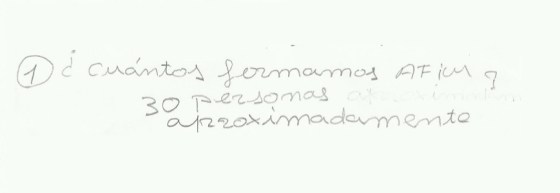 ① ¿ cuántos formamos AFiCM ?
30 personas
aproximadamente